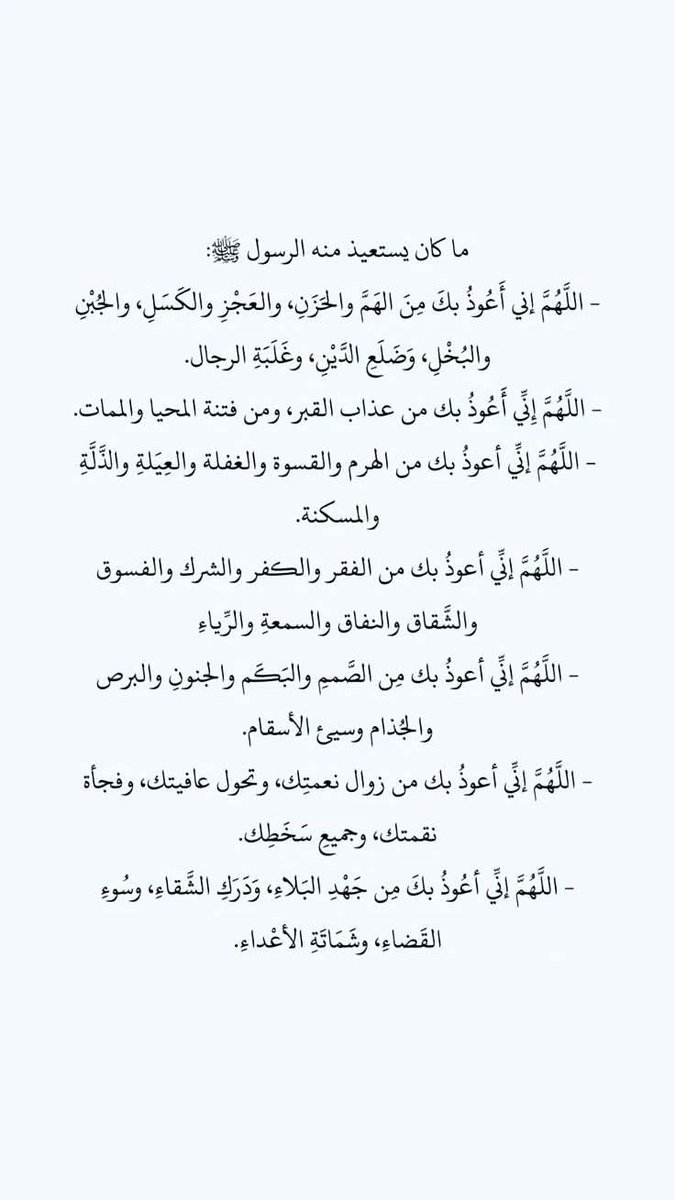 ما كان يستعيذ منه الرسول ﷺ:
- اللَّهُمَّ إني أَعُوذُ بكَ مِنَ الهَمَّ والحَزَنِ، والعَجْزِ والكَسَلِ، والجُبْنِ
والبُخْلِ، وَضَلَعِ الدَّيْنِ، وغَلَبَةِ الرجال.
- اللَّهُمَّ إِنِّي أَعُوذُ بك من عذاب القبر، ومن فتنة المحيا والممات.
- اللَّهُمَّ إنِّي أعوذُ بك من الهرم والقسوة والغفلة والعِيَلةِ والذَّلَّةِ
والمسكنة.
- اللَّهُمَّ إنِّي أعوذُ بك من الفقر والكفر والشرك والفسوق
والشَّقاق والنفاق والسمعةِ والرِّياءِ
- اللَّهُمَّ إنِّي أعوذُ بك مِن الصَّممِ والبَكَم والجنونِ والبرص
والجُذام وسيئ الأسقام.
- اللَّهُمَّ إنِّي أعوذُ بك من زوال نعمتِك، وتحول عافيتك، وفجأة
نقمتك، وجميعِ سَخَطِك.
- اللَّهُمَّ إنِّي أعُوذُ بكَ مِن جَهْدِ البَلاءِ، وَدَرَكِ الشَّقاءِ، وسُوءِ
القَضاءِ، وشَمَاتَةِ الأعْداءِ.